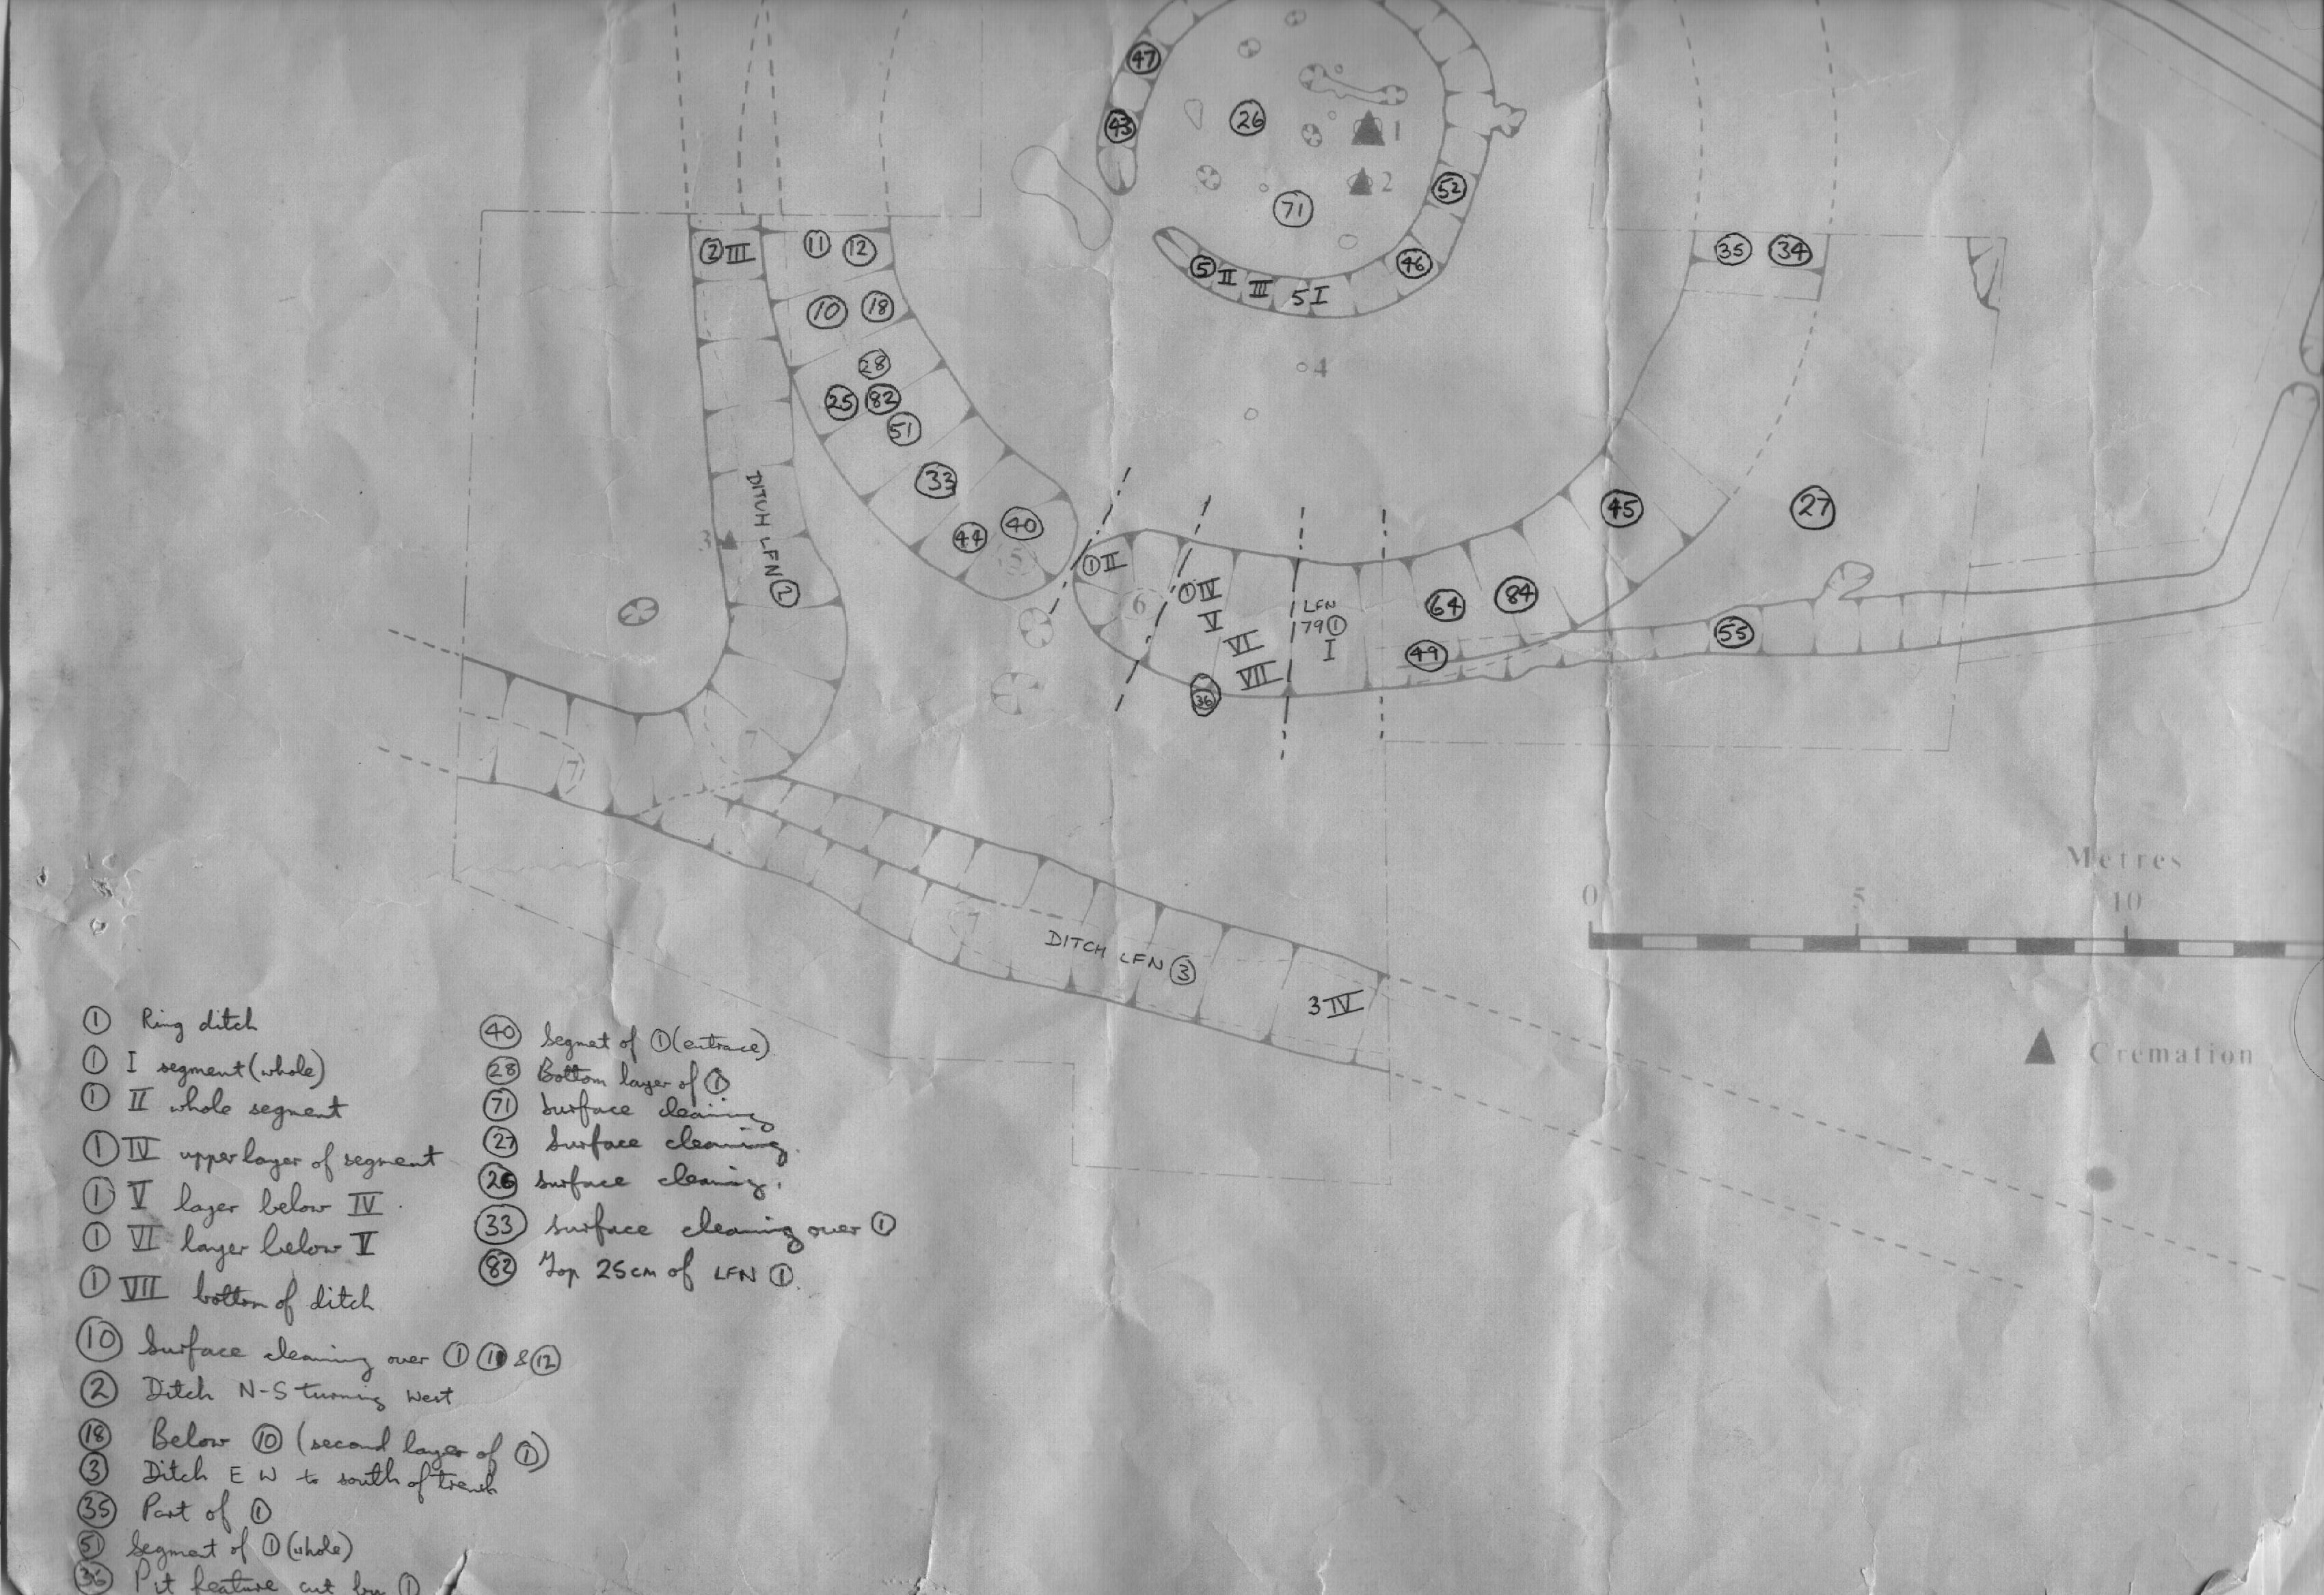 47
43
26
1
2
52
71
2 III
11 12
5 II III 5 I
46
35 34
10 18
28
4
25 82
51
33
DITCH LFN 2
3
44 40
5
45
27
1 II
6
1 IV
V
VI
VII
LFN
79 1
I
64 84
49
55
36
7
7
7
DITCH LFN 3
3 IV
Metres
0 5 10
Cremation
1 Ring ditch
1 I segment (whole)
1 II whole segment
1 IV upper layer of segment
1 V layer below IV
1 VI layer below V
1 VII bottom of ditch
10 Surface cleaning over 1 11 & 12
2 Ditch N-S turning West
18 Below 10 (second layer of 1)
3 Ditch E W to south of trench
35 Part of 1
51 Segment of 1 (whole)
36 Pit feature cut by 1
40 Segmet of 1 (entrace)
28 Bottom layer of 1
71 Surface cleaning
27 Surface cleaning.
26 Surface cleaning.
33 Surface cleaning over 1
82 Top 25cm of LFN 1.